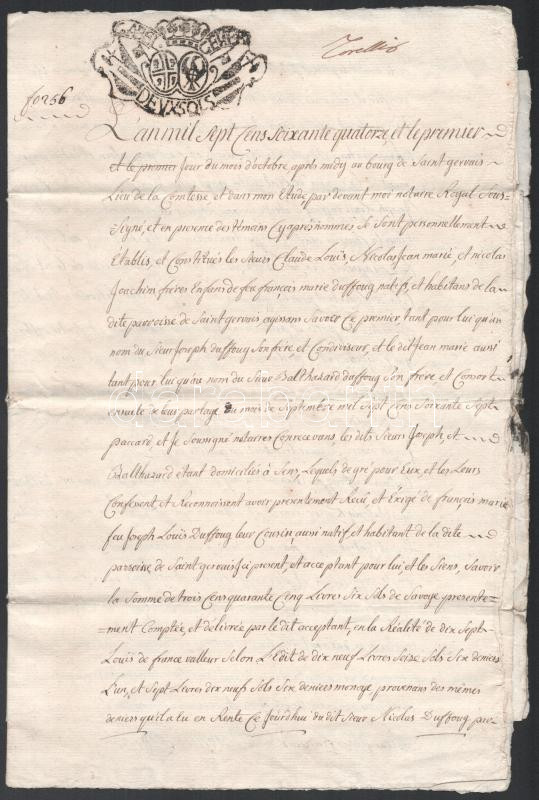 DEVX SOLS
fo 256
L'an mil Sept Cens Soixante quatorze, et le premier
et le premier Jour du mois d'octobre, apres midy au bourg de Saint gervais
Lieu de la Comtesse et dans mon Etude, par devant moÿ notaire Royal Sous-
Signé, et en presence des témoins Cy apres nommes Se Sont personnellement
Etablis, et Constitués les Sieurs Claude Loüis, Nicolas Jean marie, et nicolas
Joachim freres Enfans de feu françois marie duffoug natifs, et habitans de la
dite parroisse de Saint gervais agissans Savoir Ce premier, tant pour lui qu'au
nom du Sieur Joseph duffoug Son frere, et Condiviseur, et le dit Jean marie aussi
tant pour lui qu'au nom du Sieur Balthazard duffoug Son frere et Consort
ensuite de leur partage du mois de Septembre mil Sept Cens Soixante Sept
paccard, et Je Soussigné notaires Conrecevans, les dits Sieurs Joseph, et
Balthazard etant domiciliés à Sens, Lesquels de gré pour Eux, et les Leurs
Confessent, et Reconnoissent avoir presentement Recû, et Exigé de françois marie
feu Joseph Loüis Duffoug leur Cousin, aussi natif, et habitant de la dite
parroisse de Saint gervais Ici present, et acceptant pour lui, et les Siens, Savoir
la Somme de trois Cens quarante Cinq Livres Six Sols de Savoye presente=
=ment Comptée, et délivrée par le dit acceptant, en la Réalité de dix Sept
Loüis de france valleur Selon L'Edit de dix neuf Livres Seize Sols Six deniers
L'un, et Sept Livres dix neuf Sols Six deniers monoye provenans des mêmes
deniers qu'il a Eu en Rente Ce Jourdhui du dit Sieur Nicolas Duffoug par-